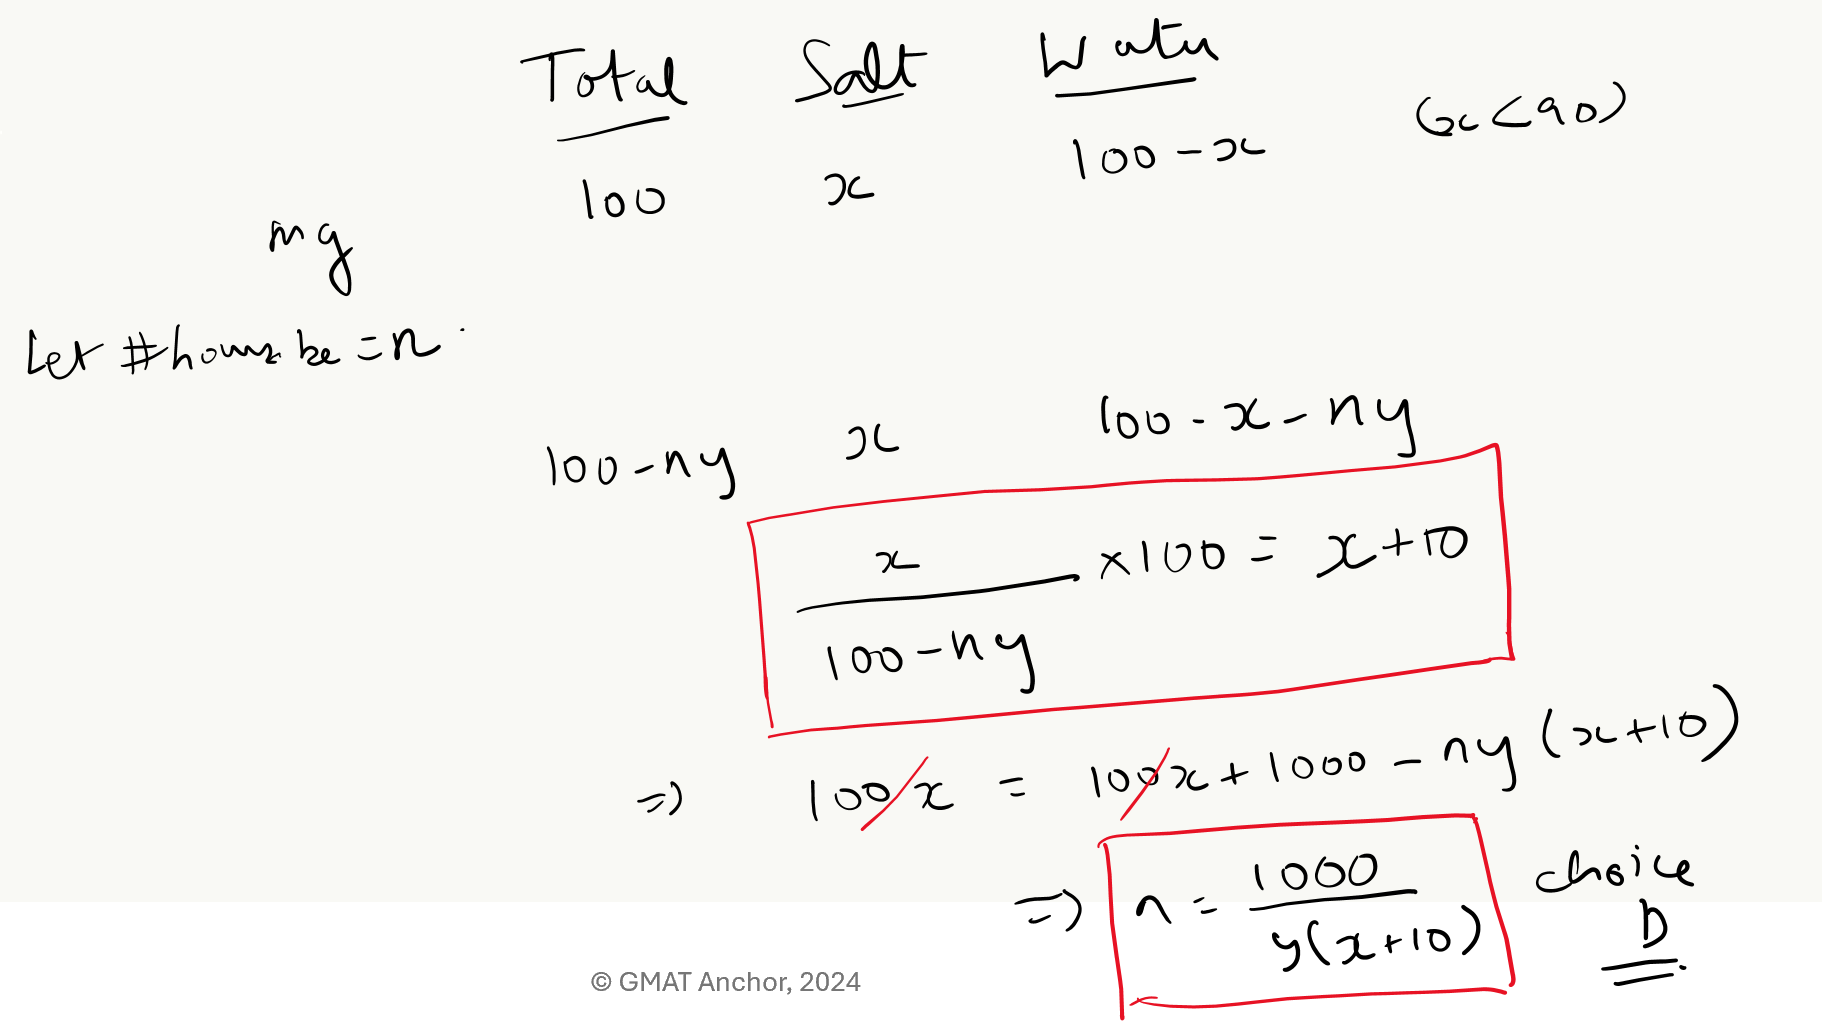 Total Salt Water
100 x 100-x (x<90)
ny
Let #hours be = n.
100-ny x 100-x-ny
x/(100-ny) ×100 = x+10
⇒ 100x = 100x+1000-ny(x+10)
⇒ n = 1000/(y(x+10)) choice
D
© GMAT Anchor, 2024